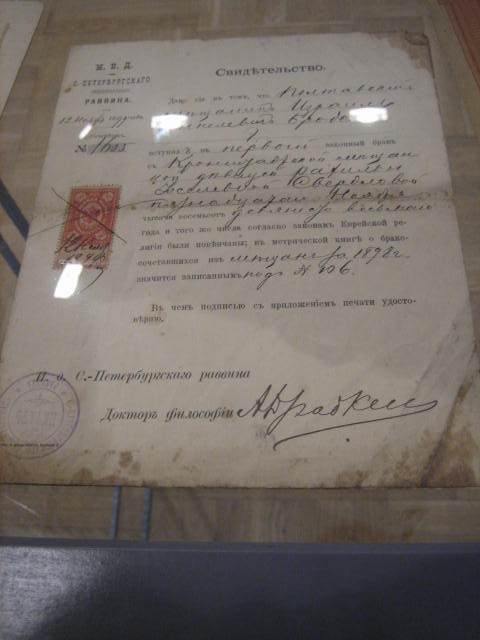 М. В. Д.
С.-ПЕТЕРБУРГСКАГО
РАВВИНА.
12 1899 года
№ 1623
Свидѣтельство.
Дано сіе въ томъ, что Полтавскій
мѣщанинъ Израиль
вступилъ въ первый законный бракъ
съ Кронштадтской мѣщан
кой дѣвицей Рахилью
Іоселевной Свердловой
пятнадцатаго
тысяча восемьсотъ девяносто восьмого
года и того же числа согласно законамъ Еврейской ре-
лигіи были повѣнчаны; въ метрической книгѣ о брако-
сочетавшихся изъ мѣщанъ за 1898 г.
значится записаннымъ подъ № 106.
Въ чемъ подписью съ приложеніемъ печати удосто-
вѣряю.
И. д. С.-Петербургскаго раввина
Докторъ философіи А Драбкин